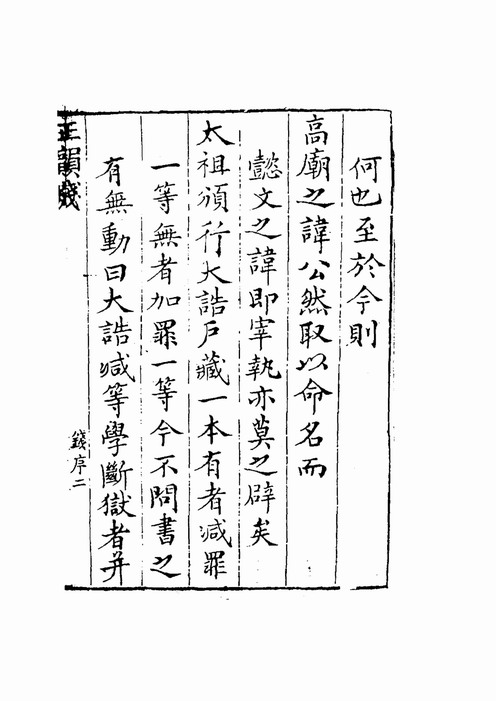 何也至於今則
高廟之諱公然取以命名而
懿文之諱即宰執亦莫之辟矣
太祖頒行大誥戶藏一本有者減罪
一等無者加罪一等今不問書之
有無動曰大誥减等學斷獄者并
正韻牋
錢序二